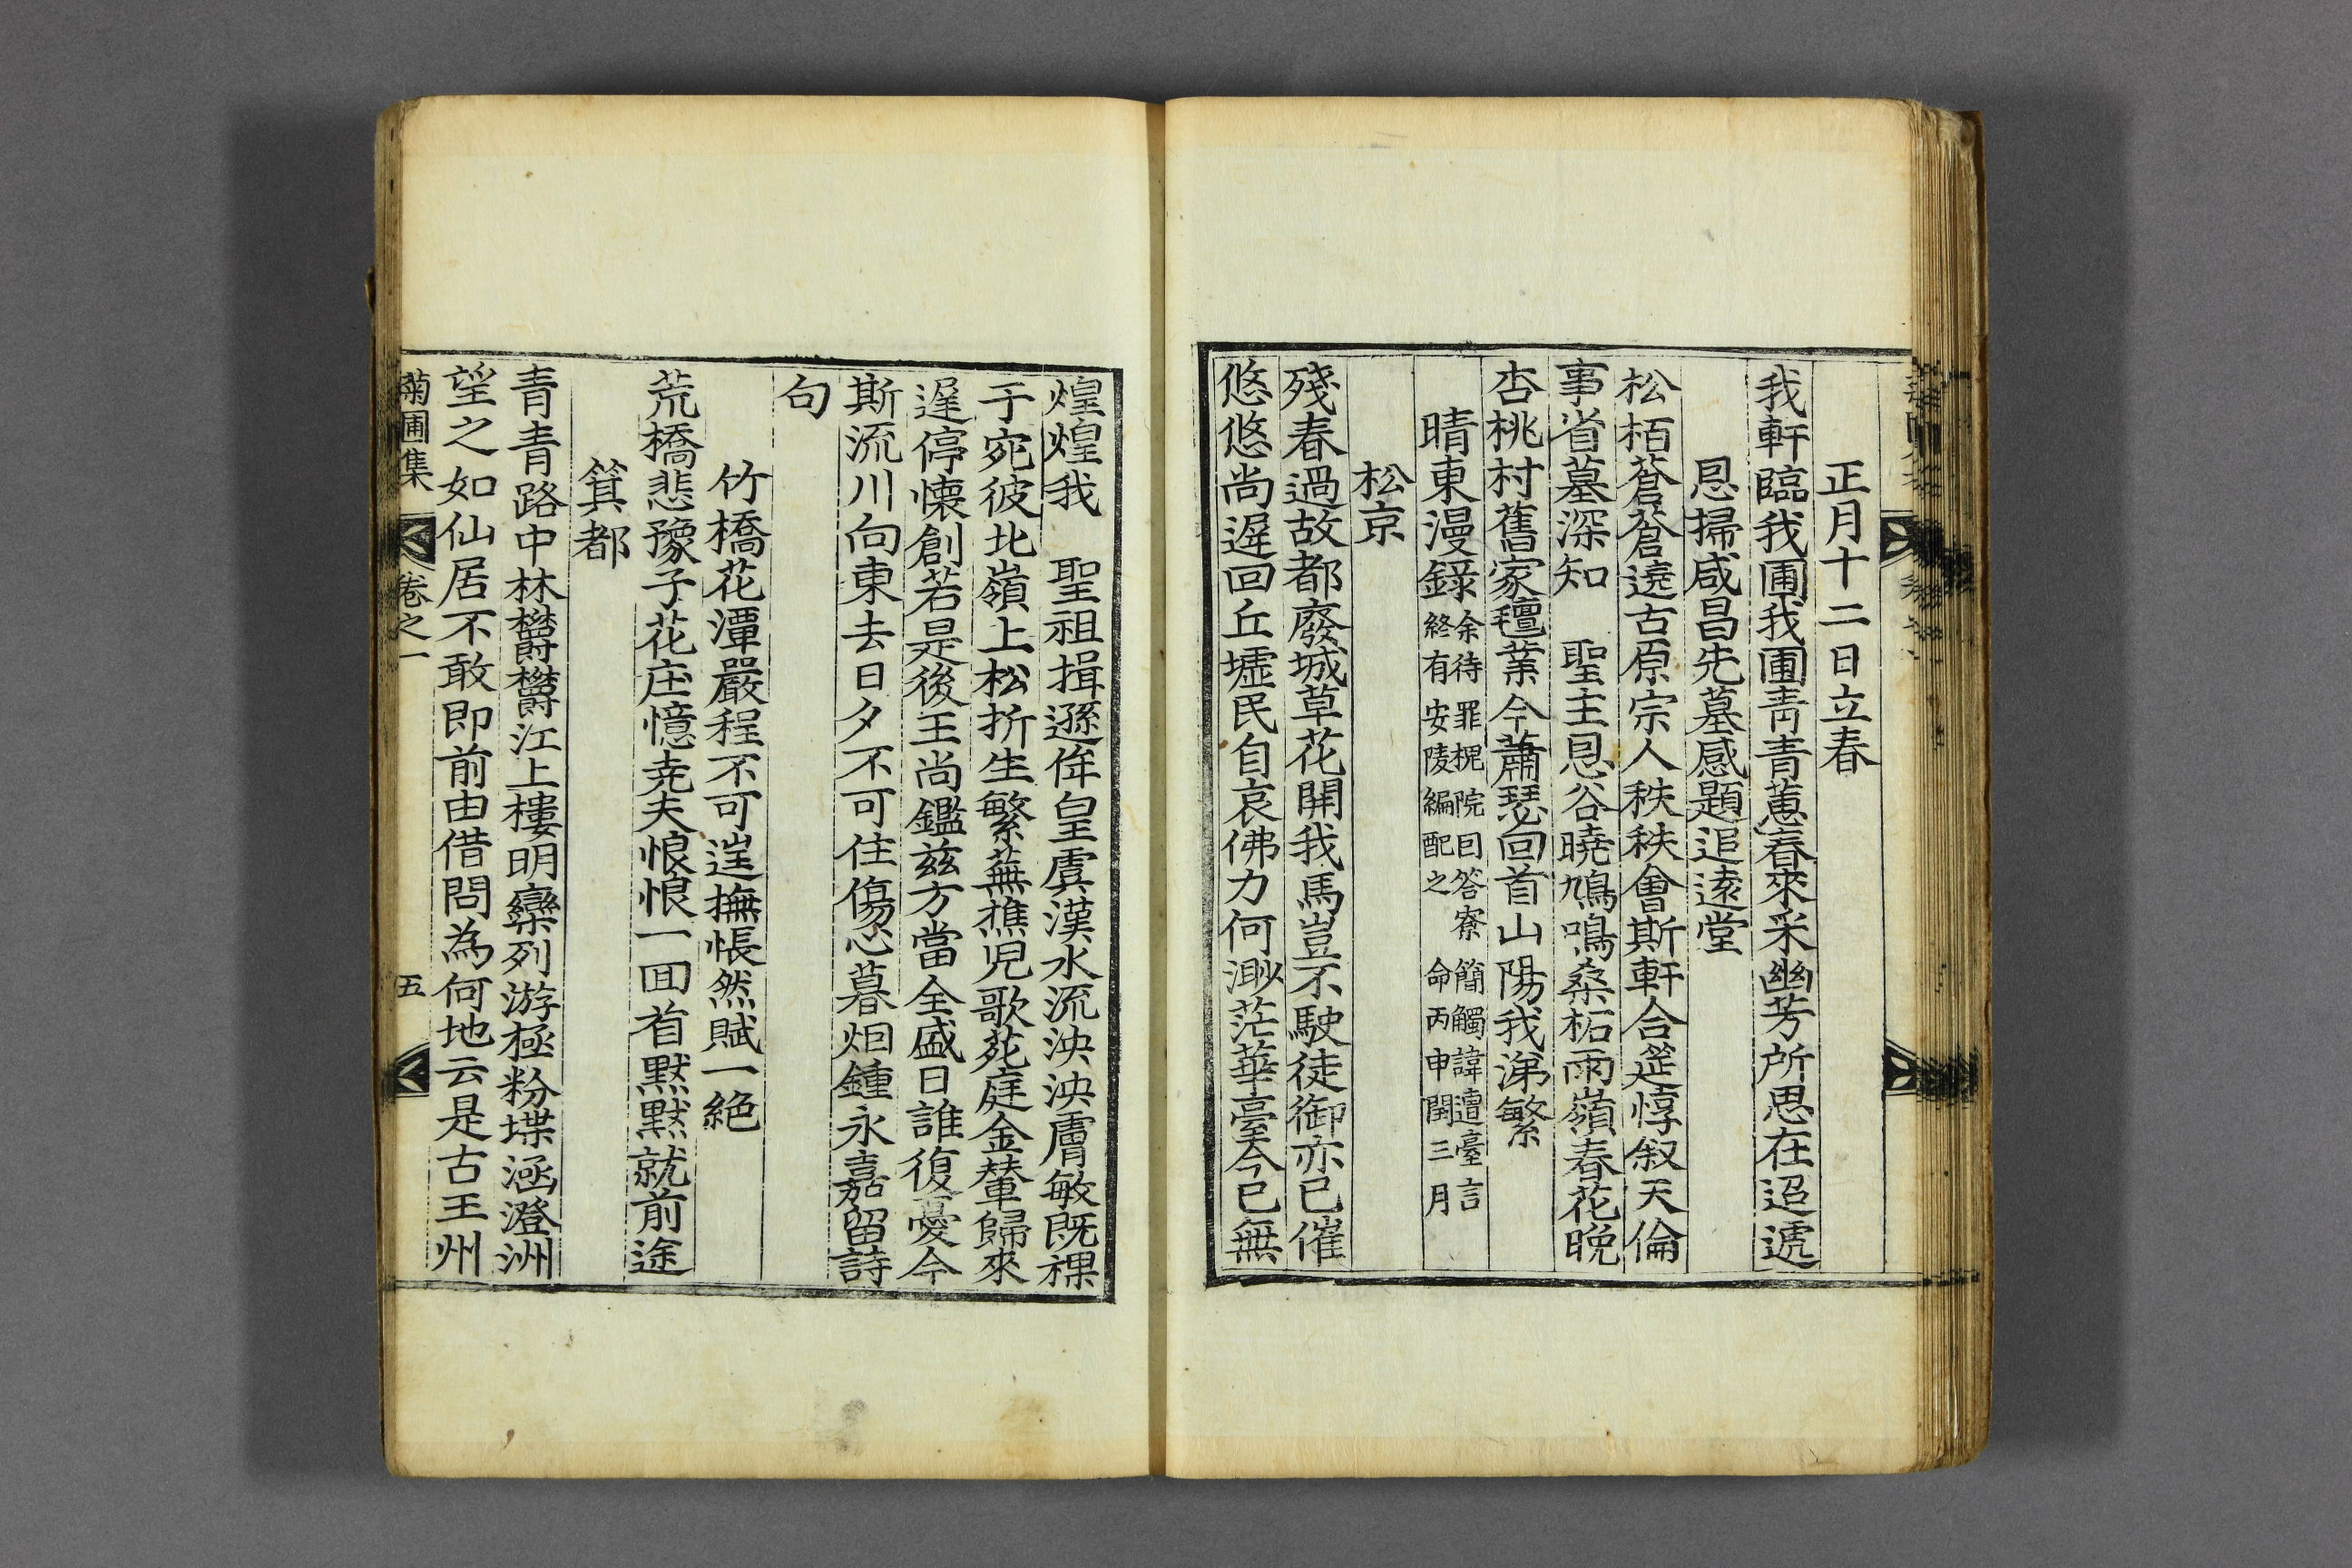 正月十二日立春
我軒臨我圃我圃靑青蕙春來采幽芳所思在迢遞
恩掃咸昌先墓感題追遠堂
松栢蒼蒼遶古原宗人秩秩會斯軒合筵惇叙天倫
事省墓深知 聖主恩谷曉鳩鳴桑柘雨嶺春花晩
杏桃村舊家氊業今蕭瑟回首山陽我涕繁
晴東漫錄 余待罪槐院曰答寮簡觸諱遭臺言
終有安陵編配之命丙申閏三月
松京
殘春過故都廢城草花開我馬豈不駛徒御亦已催
悠悠尚遲回丘墟民自哀佛力何渺茫華臺今已無
煌煌我 聖祖揖遜侔皇虞漢水流泱泱膚敏旣祼
于宛彼北嶺上松折生繁蕪樵児歌苑庭金輦歸來
遲停懷創若是後王尚鑑玆方當全盛日誰復憂今
斯流川向東去日夕不可住傷心暮烟鍾永嘉留詩
句
竹橋花潭嚴程不可逞撫悵然賦一絶
荒橋悲豫子花庄憶尭夫悢悢一回首黙黙就前途
箕都
青青路中林欝欝江上樓明欒列游極粉堞涵澄洲
望之如仙居不敢即前由借問為何地云是古王州
菊圃集 卷之一 五